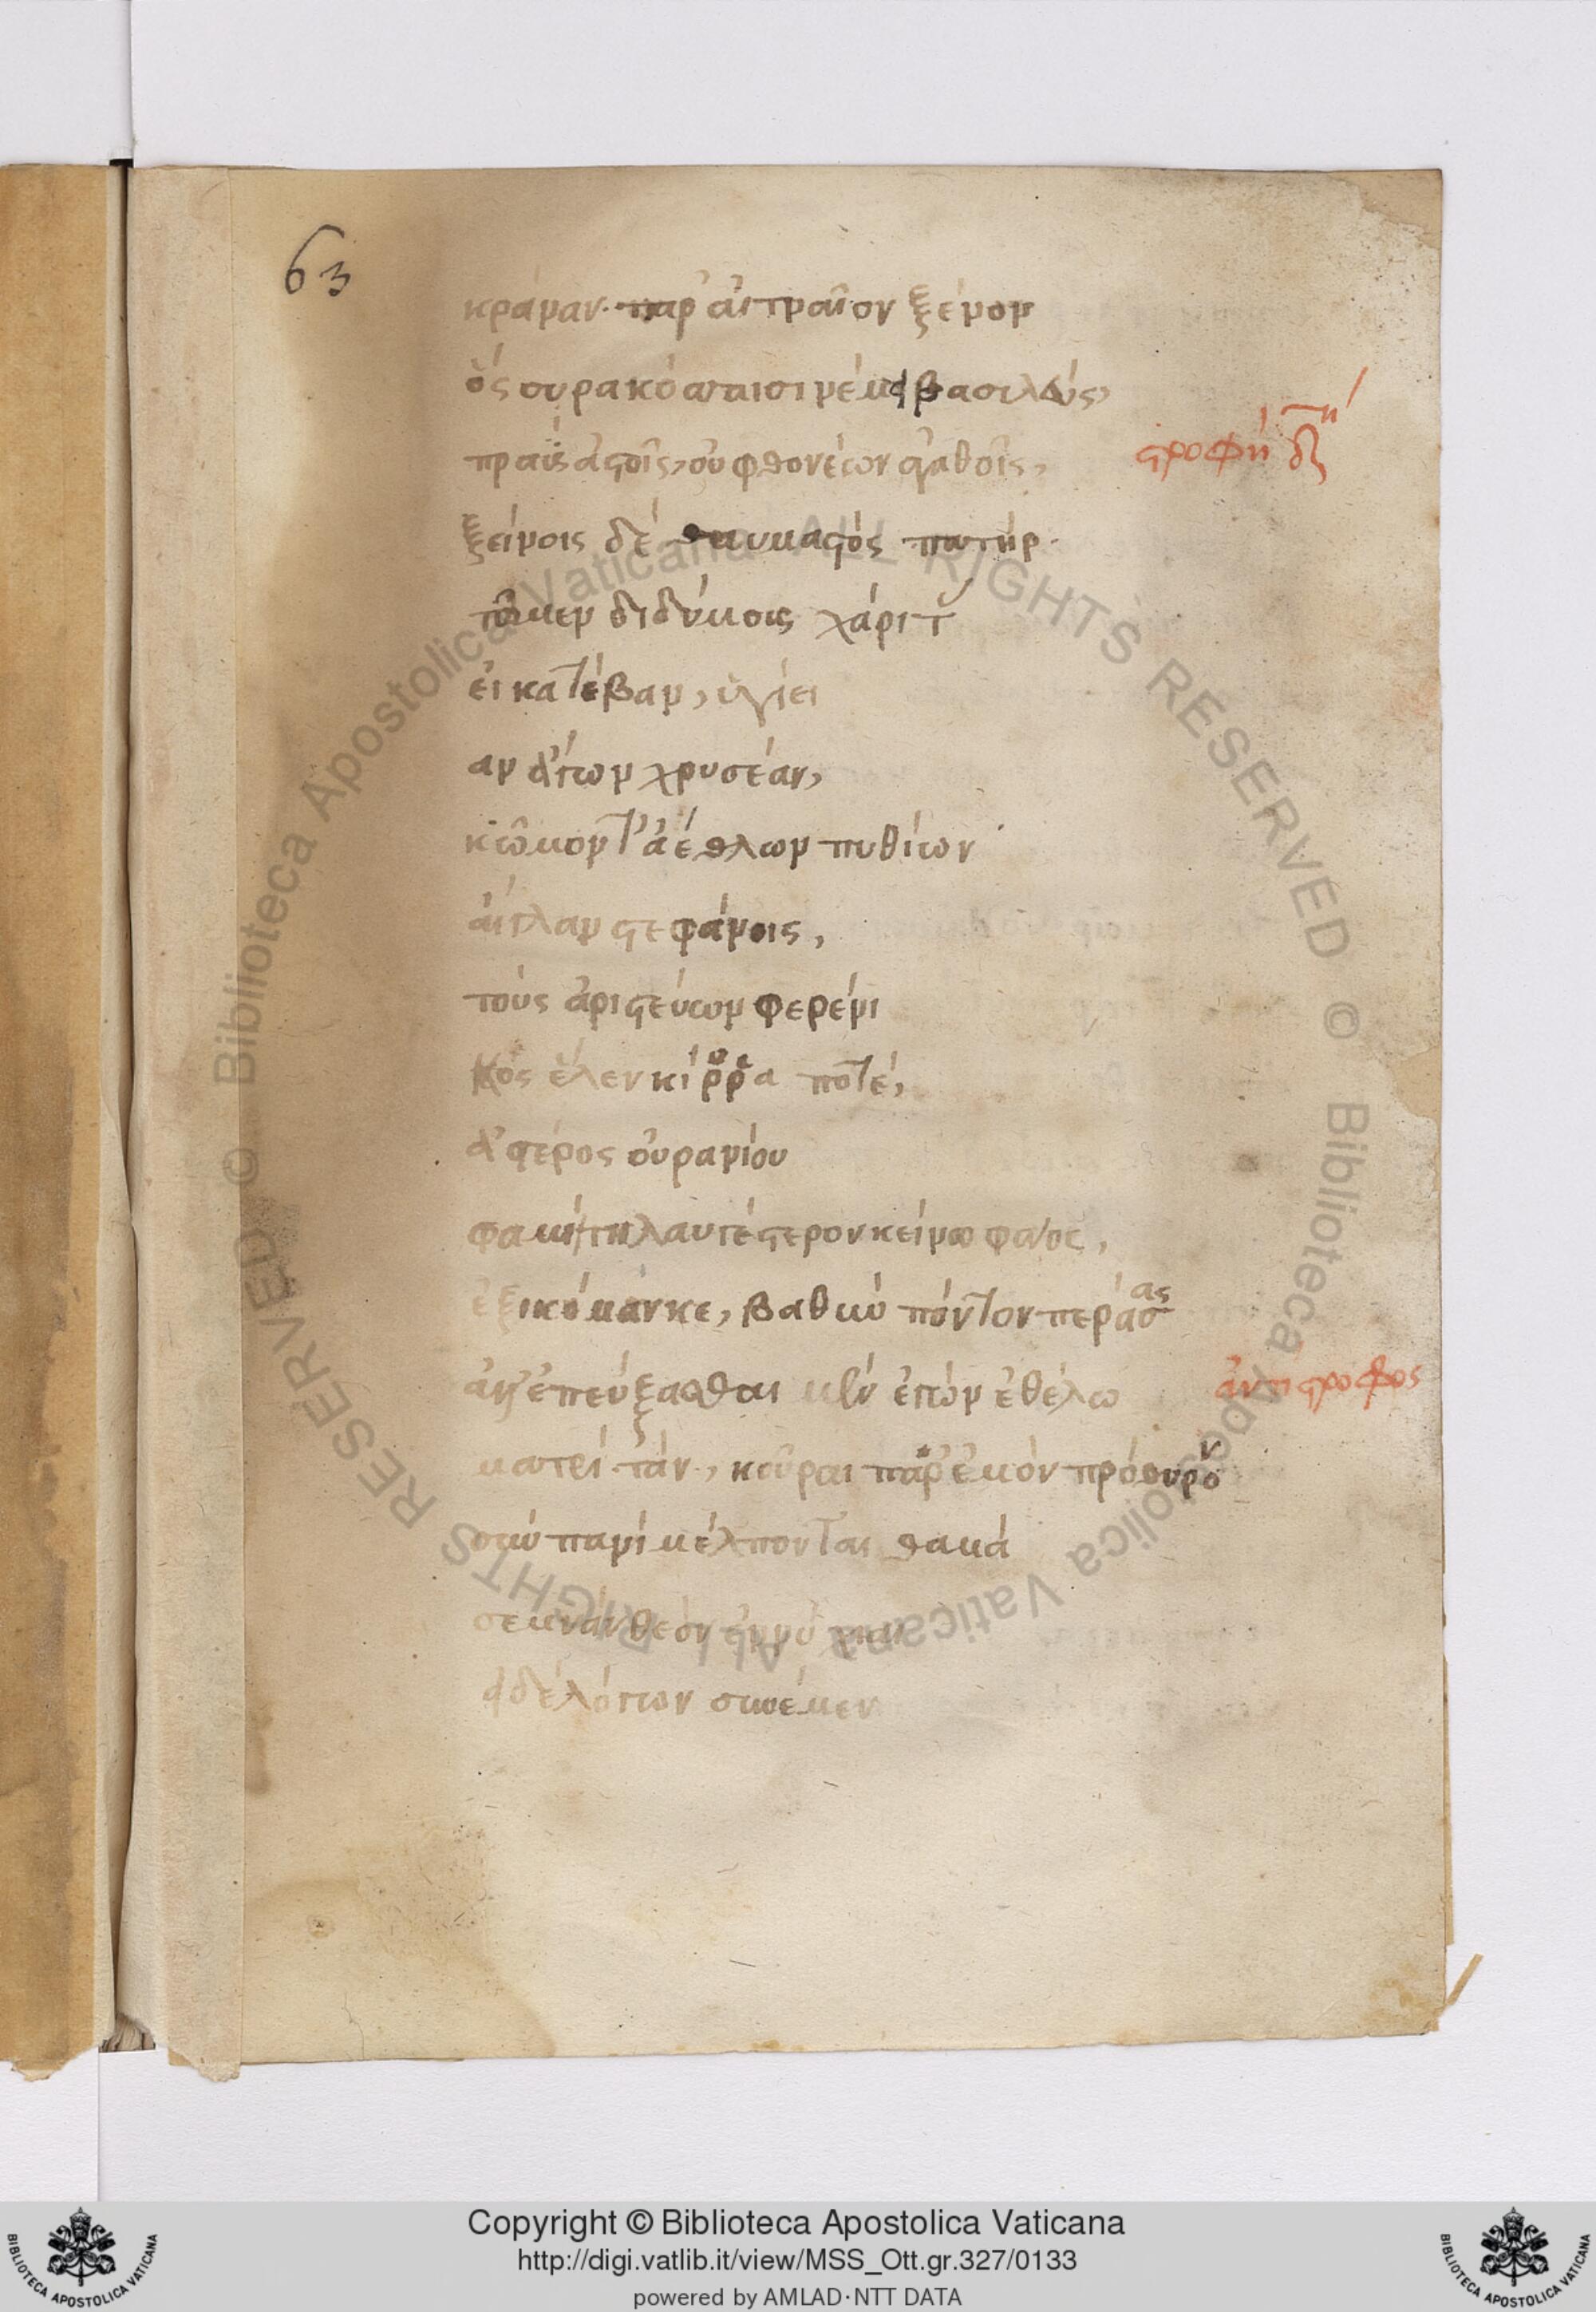 63
κράναν· παρ' αἰτναῖον ξένον
ὃς συρακόσσαισι νέμει βασιλεύς,
πραῢς ἀστοῖς, οὐ φθονέων ἀγαθοῖς,
στροφὴ
ξείνοις δέ θαυμαστὸς πατήρ·
τῶ μεν διδύμοις χάριτ
εἰ κατέβαν, ὑγίει
αν ἄγων χρυσέαν,
κῶμον τ' ἀέθλων πυθίων
αἴγλαν στεφάνοις,
τοὺς ἀριστεύων φερένι
κος ἕλεν κίρρα ποτέ,
ἀστέρος οὐρανίου
φαμὶ τηλαυγέστερον κείνω φάος,
ἐξικόμαν κε, βαθὺν πόντον περάσας
ἀλλ' ἐπεύξασθαι μὲν ἐγὼν ἐθέλω
ἀντίστροφος
ματρί· τὰν, κοῦραι παρ' ἐμὸν πρόθυρον
σὺν πανὶ μέλπονται θαμά
σεμνὰν θεὸν ἐννύχιαι
εἰ δὲ λόγων συνέμεν
© Biblioteca Apostolica Vaticana ALL RIGHTS RESERVED © Biblioteca Apostolica Vaticana ALL RIGHTS RESERVED
BIBLIOTECA APOSTOLICA VATICANA
Copyright © Biblioteca Apostolica Vaticana
http://digi.vatlib.it/view/MSS_Ott.gr.327/0133
powered by AMLAD·NTT DATA
BIBLIOTECA APOSTOLICA VATICANA